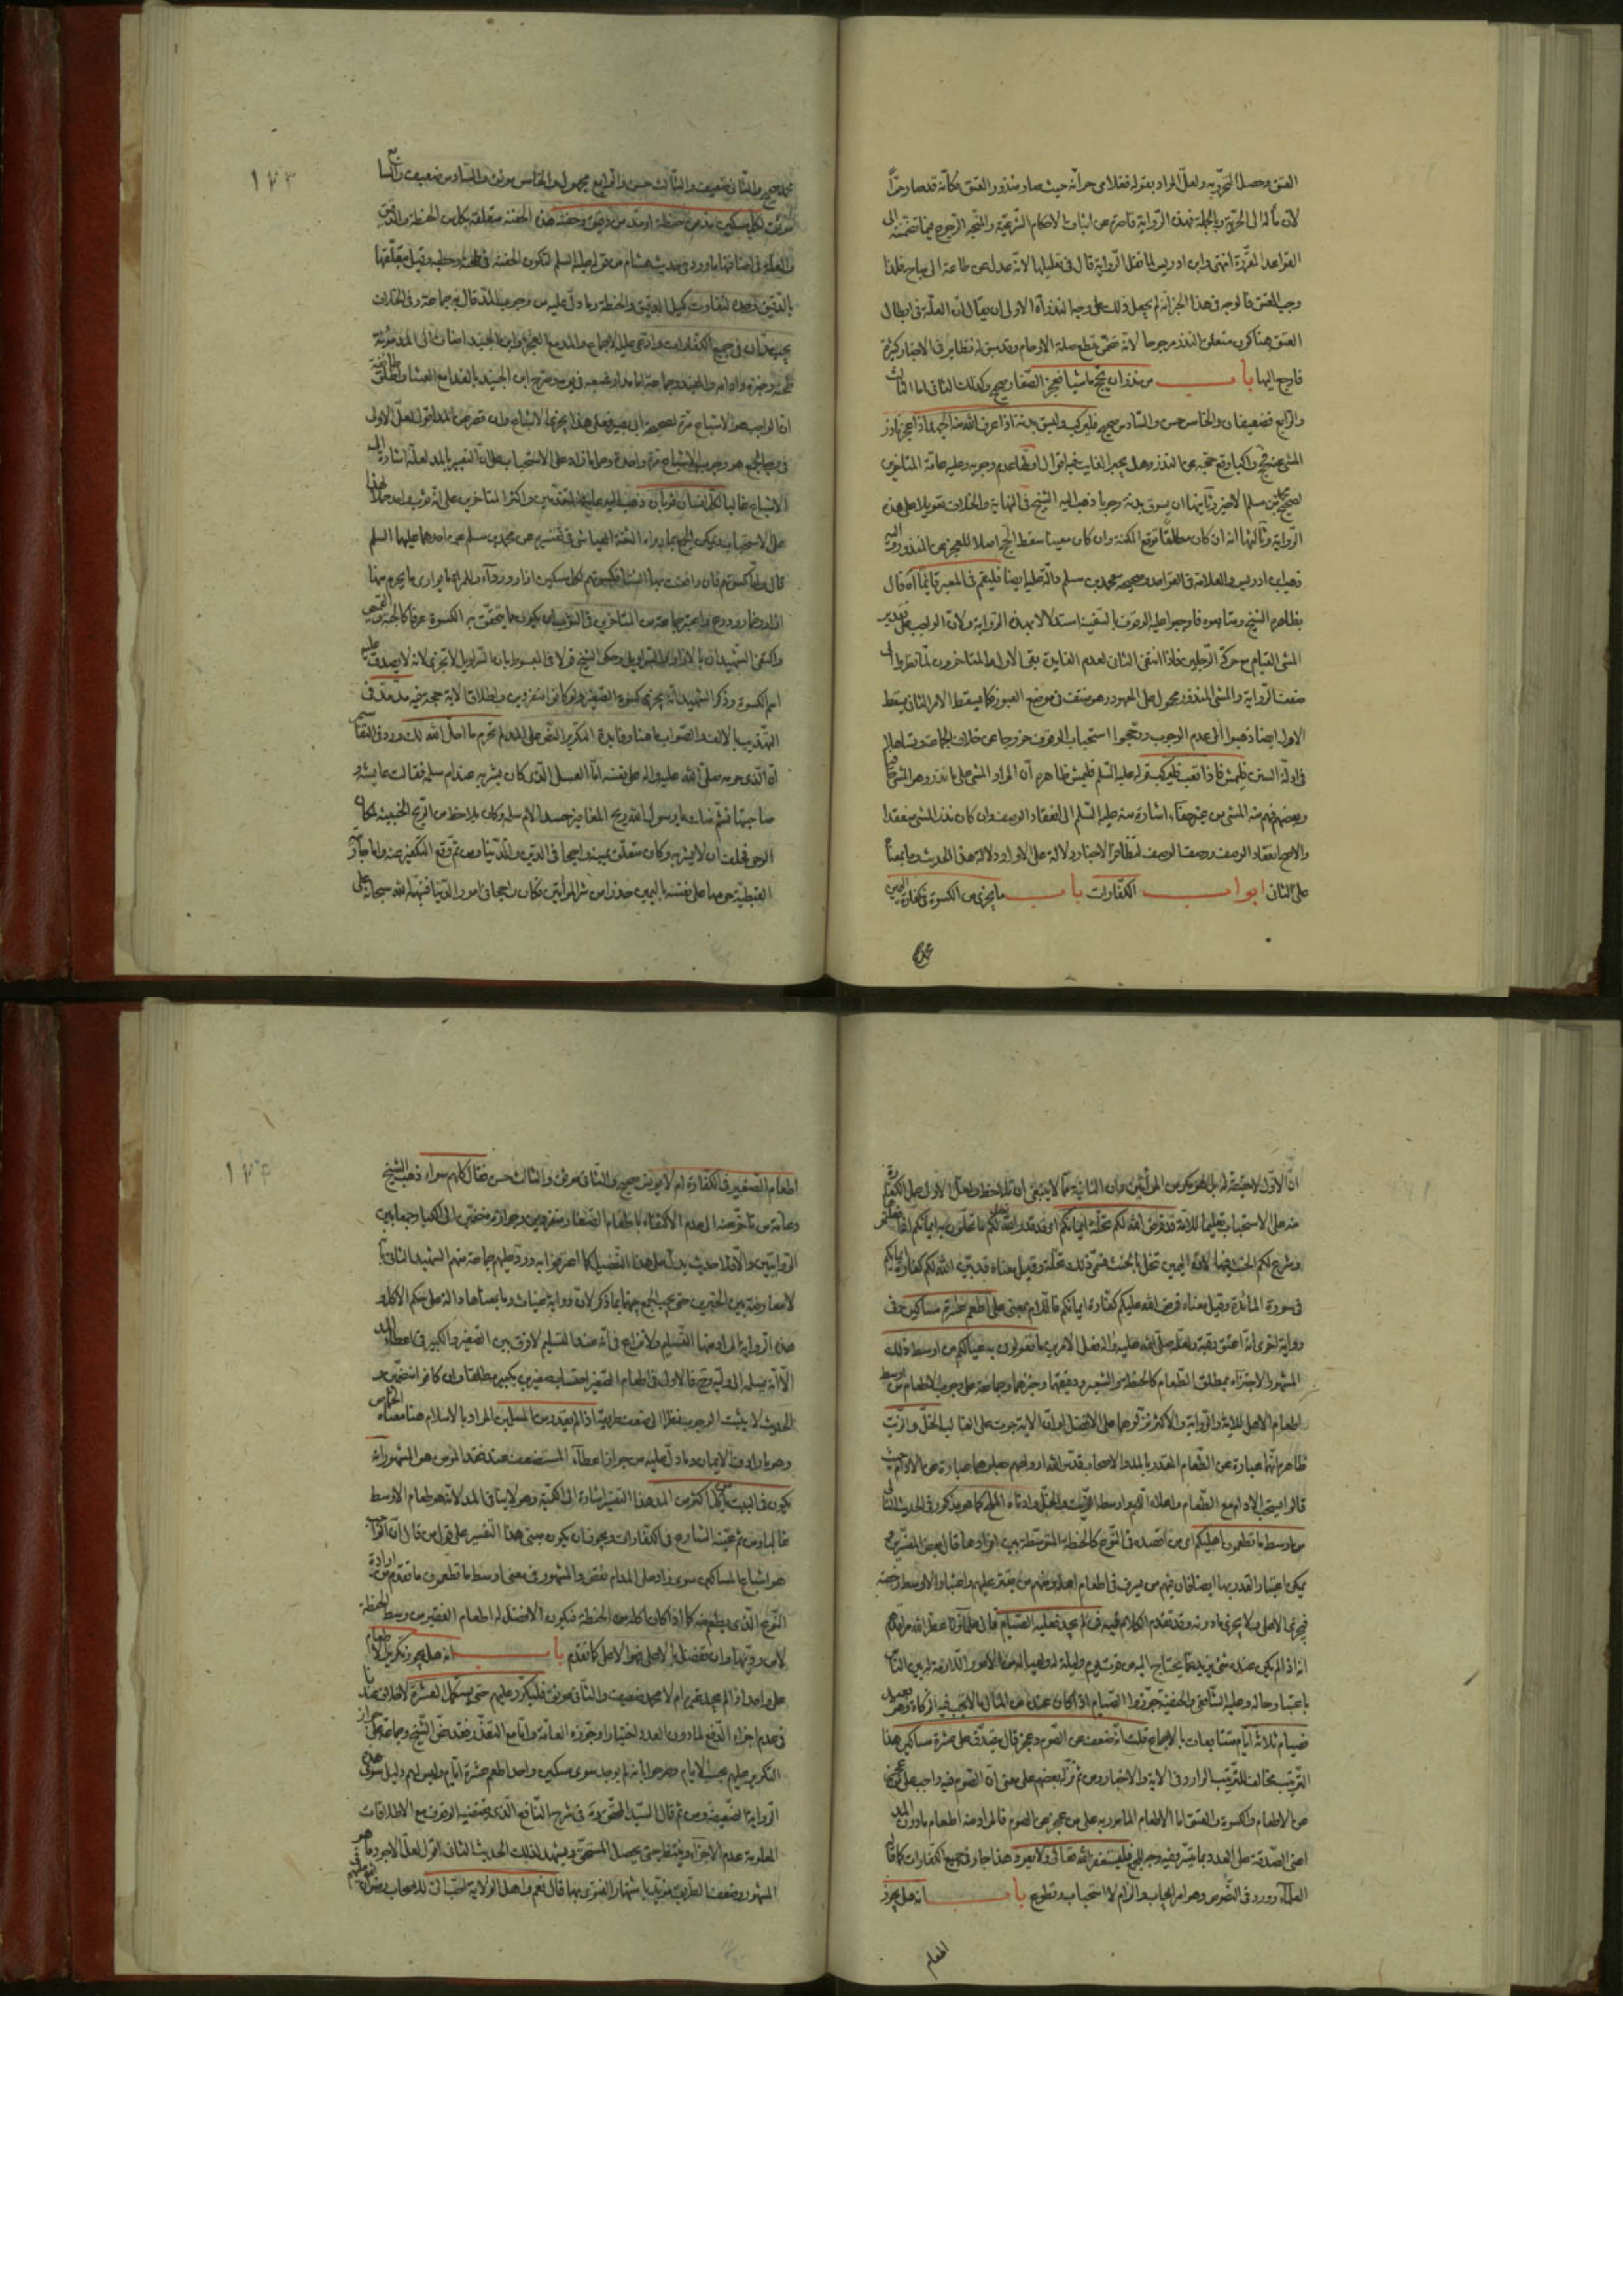 العتق وحصل التحريه ولعل المراد بقوله فغلامى حر انه حيث صار منذور العتق فكانه قد صار حرا
لان ماله الى الحرية وبالجملة فهذه الرواية قاصرة عن اثبات الاحكام الشرعية والمتجه الرجوع فيما تضمنته الى
القواعد المقررة انتهى وابن ادريس لما نقل الرواية قال فى تعليلها لانه عدل عن طاعة الى مباح
وجب العتق فالوجه فى هذا الخبر انه لم يجعل ذلك على وجه النذر الاولى ان يقال ان العلة فى ابطال
العتق هنا كون متعلق النذر مرجوحا لانه تضمن قطع صلة الارحام وقد سبق له نظاير فى الاخبار كثيرة
فارجع اليها باب من نذر ان يحج ماشيا فعجز الصفار صحيح وكذلك الثانى اما الثالث
والرابع فضعيفان والخامس حسن والسادس صحيح فليركب وليسق بدنة اذا عرف الله منه الجهد اذا عجز ناذر
المشى عنه حج راكبا وقع حجه عن النذر وهل يجبر الفايت فيه اقوال اولها عدم وجوبه وعليه عامة المتاخرين
لصحيح محمد بن مسلم الاخير وثانيها ان يسوق بدنة وجوبا ذهب اليه الشيخ فى النهاية والخلاف تعويلا على هذه
الرواية وثالثها انه ان كان مطلقا توقع المكنة وان كان معينا سقط الحج اصلا للعجز عن المنذور واليه
ذهب ابن ادريس والعلامة فى القواعد وصحيحة محمد بن مسلم دالة عليه ايضا فليقم فى المعبر قائما اه قال
بظاهره الشيخ ومتابعوه فاوجبوا عليه الوقوف بالسفينة استدلالا بهذه الرواية ولان الواجب على تقدير
المشى القيام مع حركة الرجلين فاذا انتفى الثانى لعدم الفايدة بقى الاول والمتاخرون لما نظروا الى
ضعف الرواية والمشى المنذور محمول على المعهود وهو منتف فى موضع العبور فكما يسقط الامر الثانى يسقط
الاول ايضا ذهبوا الى عدم الوجوب ورجحوا استحباب الوقوف خروجا عن خلاف الجماعة وتساهلا
فى ادلة السنن فليمش فاذا تعب فليركب قوله عليه السلم فليمش ظاهره ان المراد المشى على ما نذر وهو المشى حافيا
وبعضهم فهم منه المشى من غير حفاء اشارة منه عليه السلم الى انعقاد الوصف وان كان نذر المشى منعقدا
والاصح انعقاد الوصف وضعف الوصف لتظافر الاخبار ودلالة على الاول ودلالة هذا الحديث وما بمعناه
على الثانى ابواب الكفارات باب ما يجزى من الكسوة فى كفارة اليمين
محمد صحيح والثانى ضعيف والثالث حسن والرابع مجهول والخامس موثق والسادس ضعيف والسابع
موثق لكل مسكين مد من حنطة او مد من دقيق وحفنة هذه الحفنة متعلقة بكل من الحنطة والدقيق
والعلة فى اضافتها ما ورد فى حديث هشام من قوله عليه السلم لتكون الحفنة فى طحنه وحطبه وقيل بتعلقها
بالدقيق وحده لتفاوت كيل الدقيق والحنطة وما دل عليه من وجوب المد قال به جماعة وفى الخلاف
يجب مدان فى جميع الكفارات وادعى عليه الاجماع والمد مع العجز وابن الجنيد اضاف الى المد مؤنة
طحنه وخبزه وادامه والمفيد وجماعة اما مد او شبعه فى يومه وصرح ابن الجنيد بالغداء مع العشاء واطلق طائفة
ان الواجب هو الاشباع مرة لصحيحة ابى بصير وعلى هذا يجزى الاشباع وان قصر عن المد اقول لعل الاولى
فى وجه الجمع هو وجوب الاشباع مرة واحدة وحمل ما زاد على الاستحباب على ان التعبير بالمد لعله اشارة الى
الاشباع غالبا لكل انسان ثوبان ذهب اليه جماعة من المتقدمين واكثر المتاخرين على انه ثوب واحد حملا لهذا
على الاستحباب ويمكن الجمع بما رواه الثقة العياشى فى تفسيره عن محمد بن مسلم عن احدهما عليهما السلم
قال واما كسوتهم فان وافقت بها الشتاء فكسوتهم لكل مسكين ازار ورداء وللمراة ما يوارى ما يحرم منها
ازار وخمار ودرع واعتبر جماعة من المتاخرين فى الثوب ان يكون مما يتحقق به الكسوة عرفا كالجبة والقميص
واكتفى الشهيدان بالازار والسراويل وحكى الشيخ قولا فى المبسوط بان السراويل لا تجزى لانه لا يصدق عليه
اسم الكسوة وذكر الشهيد انه يجزى كسوة الصغير ولو كانوا منفردين واطلاق الاية حجة فيه
التهذيب بالالف والصواب ما هنا وفايدة التكرير النص على المد لم تحرم ما احل الله لك ورد فى التفاسير
ان الذى حرمه صلى الله عليه واله على نفسه اما العسل الذى كان يشربه عند ام سلمة فقالت عايشة و
صاحبتها نشم منك يا رسول الله ريح المغافير حسدا لام سلمة وكان يلاحظ من الريح الخبيث لمكان
الوحى فحلف ان لا يشربه وكان متعلق يمينه راجحا فى الدين والدنيا ومن ثم وقع التكفير عنه واما مارية
القبطية حرمها على نفسه باليمين حذرا من شر المراتين فكان راجحا فى امور الدنيا فنبهه الله سبحانه على
١٢٣
ان الاول لا حقيقة له بل هو مكر من المراتين وان الثانية مما لا ينبغى ان تلاحظ ولعل الاولى حمل الكفارة
منه على الاستحباب تعليما للامة قد فرض الله لكم تحلة ايمانكم اى قد قدر الله لكم ما تحلون به ايمانكم اذا
وشرع لكم الحنث فيها لان اليمين تنحل بالحنث فسمى ذلك تحلة وقيل معناه قد بين الله لكم كفارة ايمانكم
فى سورة المائدة وقيل معناه فرض الله عليكم كفارة ايمانكم فاللام بمعنى على اطعم عشرة مساكين وفى
رواية اخرى انه اعتق رقبة ولعله صلى الله عليه واله فعل الامرين ما تقوتون به عيالكم من اوسط ذلك
المشهور الاجتزاء بمطلق الطعام كالحنطة والشعير ودقيقهما وخبزهما وجماعة على وجوب الاطعام من اوسط
اطعام الاهل للاية والرواية والاكثر نزلوهما على الافضل او ان الاية جرت على الغالب الخل والزيت
ظاهره انهما عبارة عن الطعام المقدر بالمد والاصحاب قدس الله ارواحهم جعلوهما عبارة عن الادام حيث
قالوا يستحب الادام مع الطعام واعلاه اللحم واوسطه الزيت والخل وادناه الملح كما هو مذكور فى الحديث الثانى
من اوسط ما تطعمون اهليكم اى من اقصده فى النوع كالحنطة المتوسطة بين افرادها قال بعض المفسرين و
يمكن اعتبار القدر بها ايضا فان فيهم من يسرف فى اطعام اهله ومنهم من يقتر عليهم واعتبار الاوسط رخصة
فيجزى الاعلى ولا يجزى ما دونه وقد تقدم الكلام فيه فمن لم يجد فعليه الصيام قال علماؤنا عطر الله مراقدهم
انه اذا لم يكن عنده شى يزيد عما يحتاج اليه من قوت يوم وليلة له ولعياله من الامور اللازمة له بين الناس
باعتبار حاله وعليه الشافعى والحنفية جوزوا الصيام اذا كان عنده من المال ما لا يجب فيه الزكاة وهو بعيد
فصيام ثلاثة ايام متتابعات بالاجماع قلت انه ضعف عن الصوم وعجز قال يتصدق على عشرة مساكين هذا
الترتيب مخالف للترتيب الوارد فى الاية والاخبار ومن ثم نزله بعضهم على معنى ان الصوم فيه واجب على من عجز
عن الاطعام والكسوة والعتق اما الاطعام المامور به على من عجز عن الصوم فالمراد منه اطعام ما دون المد
اعنى الصدقة على العدد بما تيسر وفيه وجه للجمع فليستغفر الله تعالى ولا يعود هذا جار فى جميع الكفارات كما قال
العلماء وورد فى النصوص وهو امر ايجاب والزام لا استحباب وتطوع باب انه هل يجوز
اطعام
اطعام الصغير فى الكفارة ام لا يونس صحيح والثانى موثق والثالث حسن فقال كلهم سواء ذهب الشيخ
وجماعة من تاخر عنه الى عدم الاكتفاء باطعام الصغار منفردين وجوازه منضمين الى الكبار وجمعا بين
الروايتين والا فلا حديث يدل على هذا التفصيل كما اعترفوا به ورد عليهم جماعة منهم الشهيد الثانى بانه
لا معارضة بين الخبرين حتى يجب الجمع بينهما بما ذكر لان رواية غياث وما بمعناها دالة على حكم الاكل و
هذه الرواية المراد منها التسليم ولا نزاع فى انه عند التسليم لا فرق بين الصغير والكبير فى اعطاء المد
الا انه يسلم الى وليه وح فالاولى فى اطعام الصغير احتساب صغيرين بكبير مطلقا وان كانوا منضمين و
الحديث لا يثبت الوجوب نظرا الى ضعف طريقه اذا لم يقدر من المسلمين المراد بالاسلام هنا معناه الخاص
وهو ما رادف الايمان وما دل عليه من جواز اعطاء المستضعف عند فقد المؤمن هو المشهور انه
يكون فى البيت من ياكل اكثر من المد هذا التفسير اشارة الى الكمية وهو لا ينافى المد لانه هو طعام الاوسط
غالبا ومن ثم عينه الشارع فى الكفارات ويجوز ان يكون مبنى هذا التفسير على قول من قال ان الواجب
هو اشباع المساكين سواء زاد على المد ام نقص والمشهور فى معنى اوسط ما تطعمون ما تقدم من ارادة
النوع الذى يطعم منه كما اذا كان اكله من الحنطة فيكون الافضل له اطعام الفقير من وسط الحنطة
لا من رديها وان تفضل بالاعلى فهو الاعلى كما تقدم باب انه هل يجوز تكرير الاطعام
على واحد اذا لم يجد غيره ام لا محمد ضعيف والثانى موثق فليكرر عليهم حتى يستكمل العشرة لا خلاف عندنا
فى عدم اجزاء الدفع لما دون العدد اختيارا وجوزه العامة واما مع التعذر فقد نص الشيخ وجماعة على جواز
التكرير عليهم بحسب الايام وصرحوا بانه لو لم يوجد سوى مسكين واحد اطعم عشرة ايام وليس لهم دليل سوى هذه
الرواية الضعيفة ومن ثم قال السيد المحقق ره فى شرح النافع الذى يقتضيه الوقوف مع الاطلاقات
المعلومة عدم الاجزاء وينتظر حتى يحصل المستحق ويشهد لذلك الحديث الثانى اقول لعل الاجود ما هو
المشهور وضعف الطريق منجبر باشتهار الفتوى بها قال نعم واهل الولاية احب الى للاصحاب رضوان الله عليهم فى
١٢٤